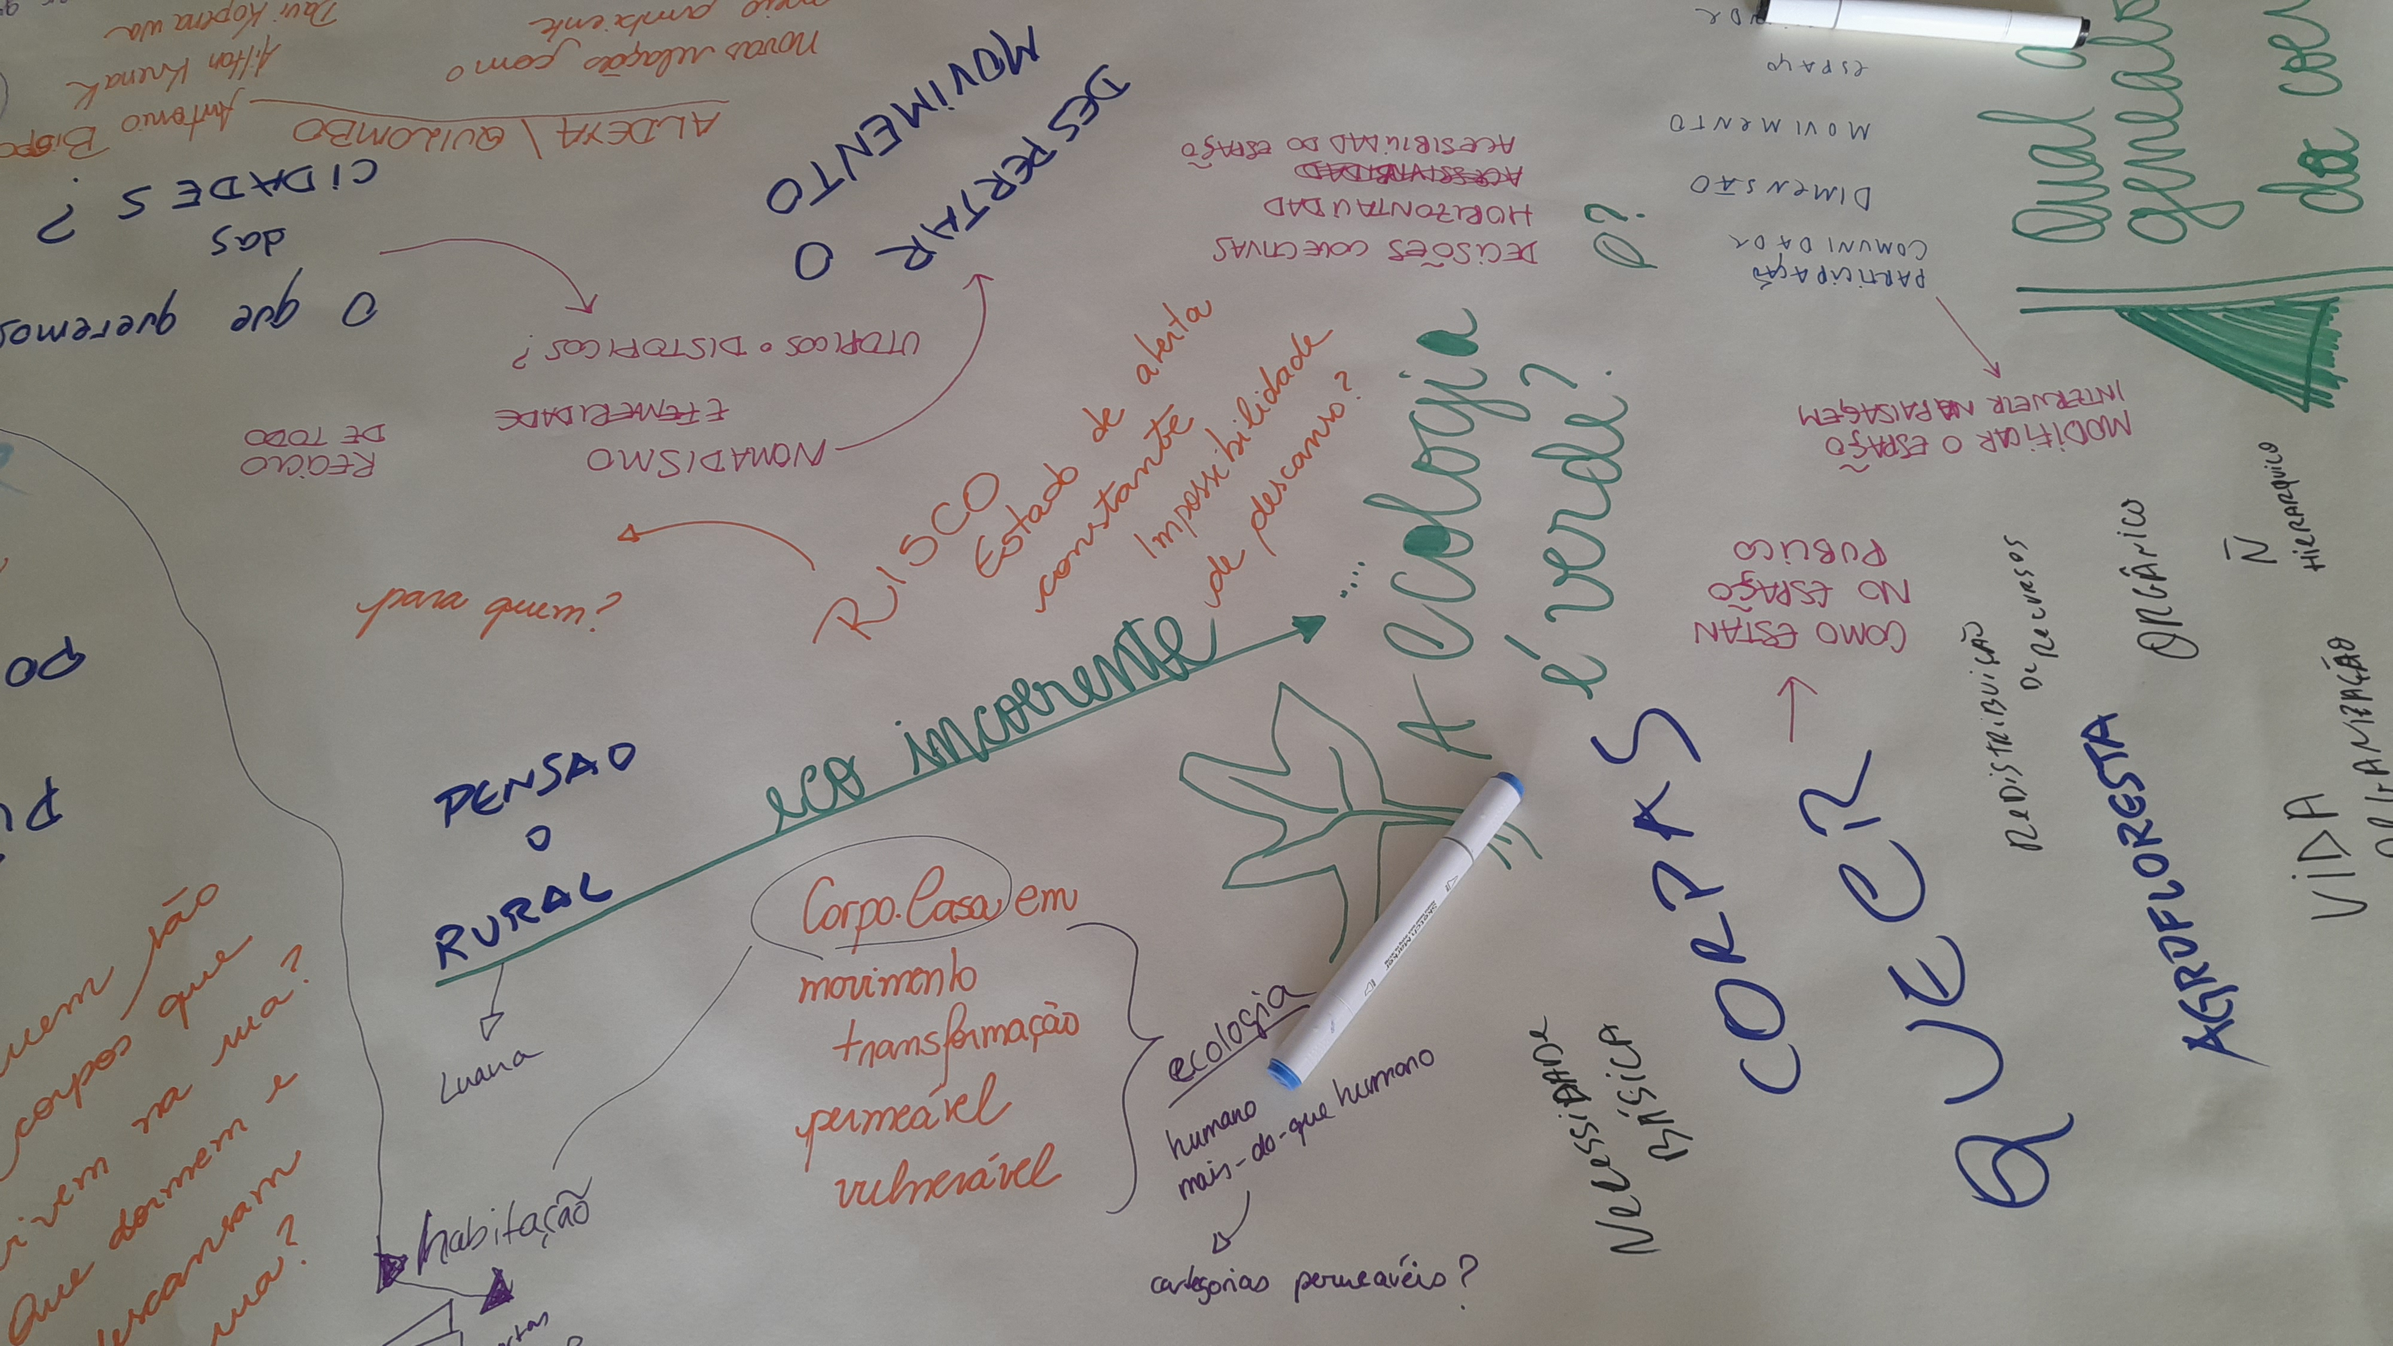 O que queremos
das
CIDADES?
ALDEYA/QUILOMBO
Antonio Bispo
Ailton Krenak
Davi Kopenawa
novas relação como
meio ambiente
DESPERTAR O
MOVIMENTO
UTOPICOS o DISTOPICOS?
NOMADISMO
EFEMERIDADE
RECICLO
DE TODO
DECISÕES COLECTIVAS
HORIZONTALIDAD
ACESIBILIDAD DO ESPAÇO
PARTICIPAÇÃO
COMUNIDADE
DIMENSÃO
MOVIMENTO
ESPAÇO
MODIFICAR O ESPAÇO
INTERVEIR NA PAISAGEM
COMO ESTAN
NO ESPAÇO
PUBLICO
RISCO
Estado de alerta
constante
Impossibilidade
de descanso?
para quem?
PENSAO
O
RURAL
Luana
eco incoerente
....
A ecologia
é verde?
Qual a
da
Corpo.Casa em
movimento
transformação
permeável
vulnerável
ecologia
humano
mais-do-que humano
categorias permeavéis?
habitação
são
corpos que
vivem na rua?
Que dormem e
descansam
rua?
CORPXS
QUEER
NECESSIDADE
BÁSICA
REDISTRIBUIÇÃO
DE RECURSOS
ORGÂNICO
Ñ
HIERARQUICO
AGROFLORESTA
VIDA